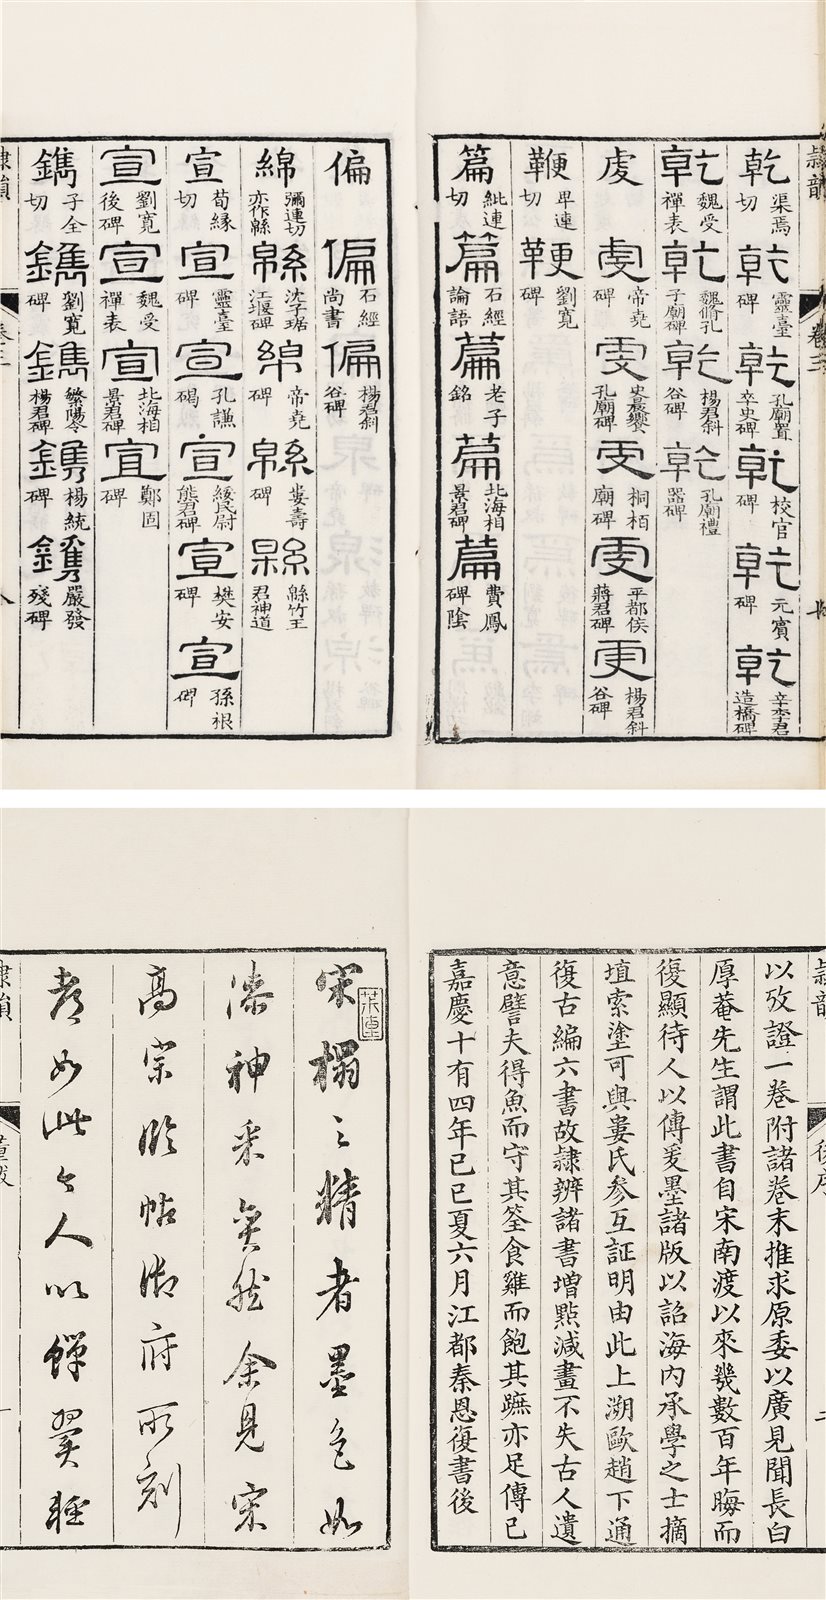 隸韻 卷三
乾 渠焉切 乾 靈臺碑 乾 孔廟置卒史碑 乾 校官碑 乾 元賓碑 乾 辛李君造橋碑
乾 魏受禪表 乾 魏脩孔子廟碑 乾 楊君斜谷碑 乾 孔廟禮器碑
虔 虔 帝堯碑 虔 史晨饗孔廟碑 虔 桐栢廟碑 虔 平都侯蔣君碑 虔 楊君斜谷碑
鞭 卑連切 鞭 劉寬碑
篇 紕連切 篇 石經論語 篇 老子銘 篇 北海相景君碑 篇 費鳳碑陰
偏 偏 石經尚書 偏 楊君斜谷碑
綿 彌連切亦作緜 緜 沈子琚江堰碑 綿 帝堯碑 緜 婁壽碑 緜 緜竹王君神道
宣 荀緣切 宣 靈臺碑 宣 孔謙碣 宣 綏民尉熊君碑 宣 樊安碑 宣 孫根碑
宣 劉寬後碑 宣 魏受禪表 宣 北海相景君碑 宣 鄭固碑
鐫 子全切 鐫 劉寬碑 鐫 繁陽令楊君碑 鐫 楊統碑 鐫 嚴發殘碑
隸韻 卷三 八
隸韻 後序 二
以攷證一卷附諸卷末推求原委以廣見聞長白
厚菴先生謂此書自宋南渡以來幾數百年晦而
復顯待人以傳爰墨諸版以詔海內承學之士摘
埴索塗可與婁氏參互証明由此上溯歐趙下通
復古編六書故隸辨諸書增點減畫不失古人遺
意譬夫得魚而守其筌食雞而飽其蹠亦足傳已
嘉慶十有四年己巳夏六月江都秦恩復書後
宋搨之精者墨色如
漆神采奐然余見宋
高宗臨帖御府所刻
都如此今人以蟬翼輕
隸韻 董跋 一